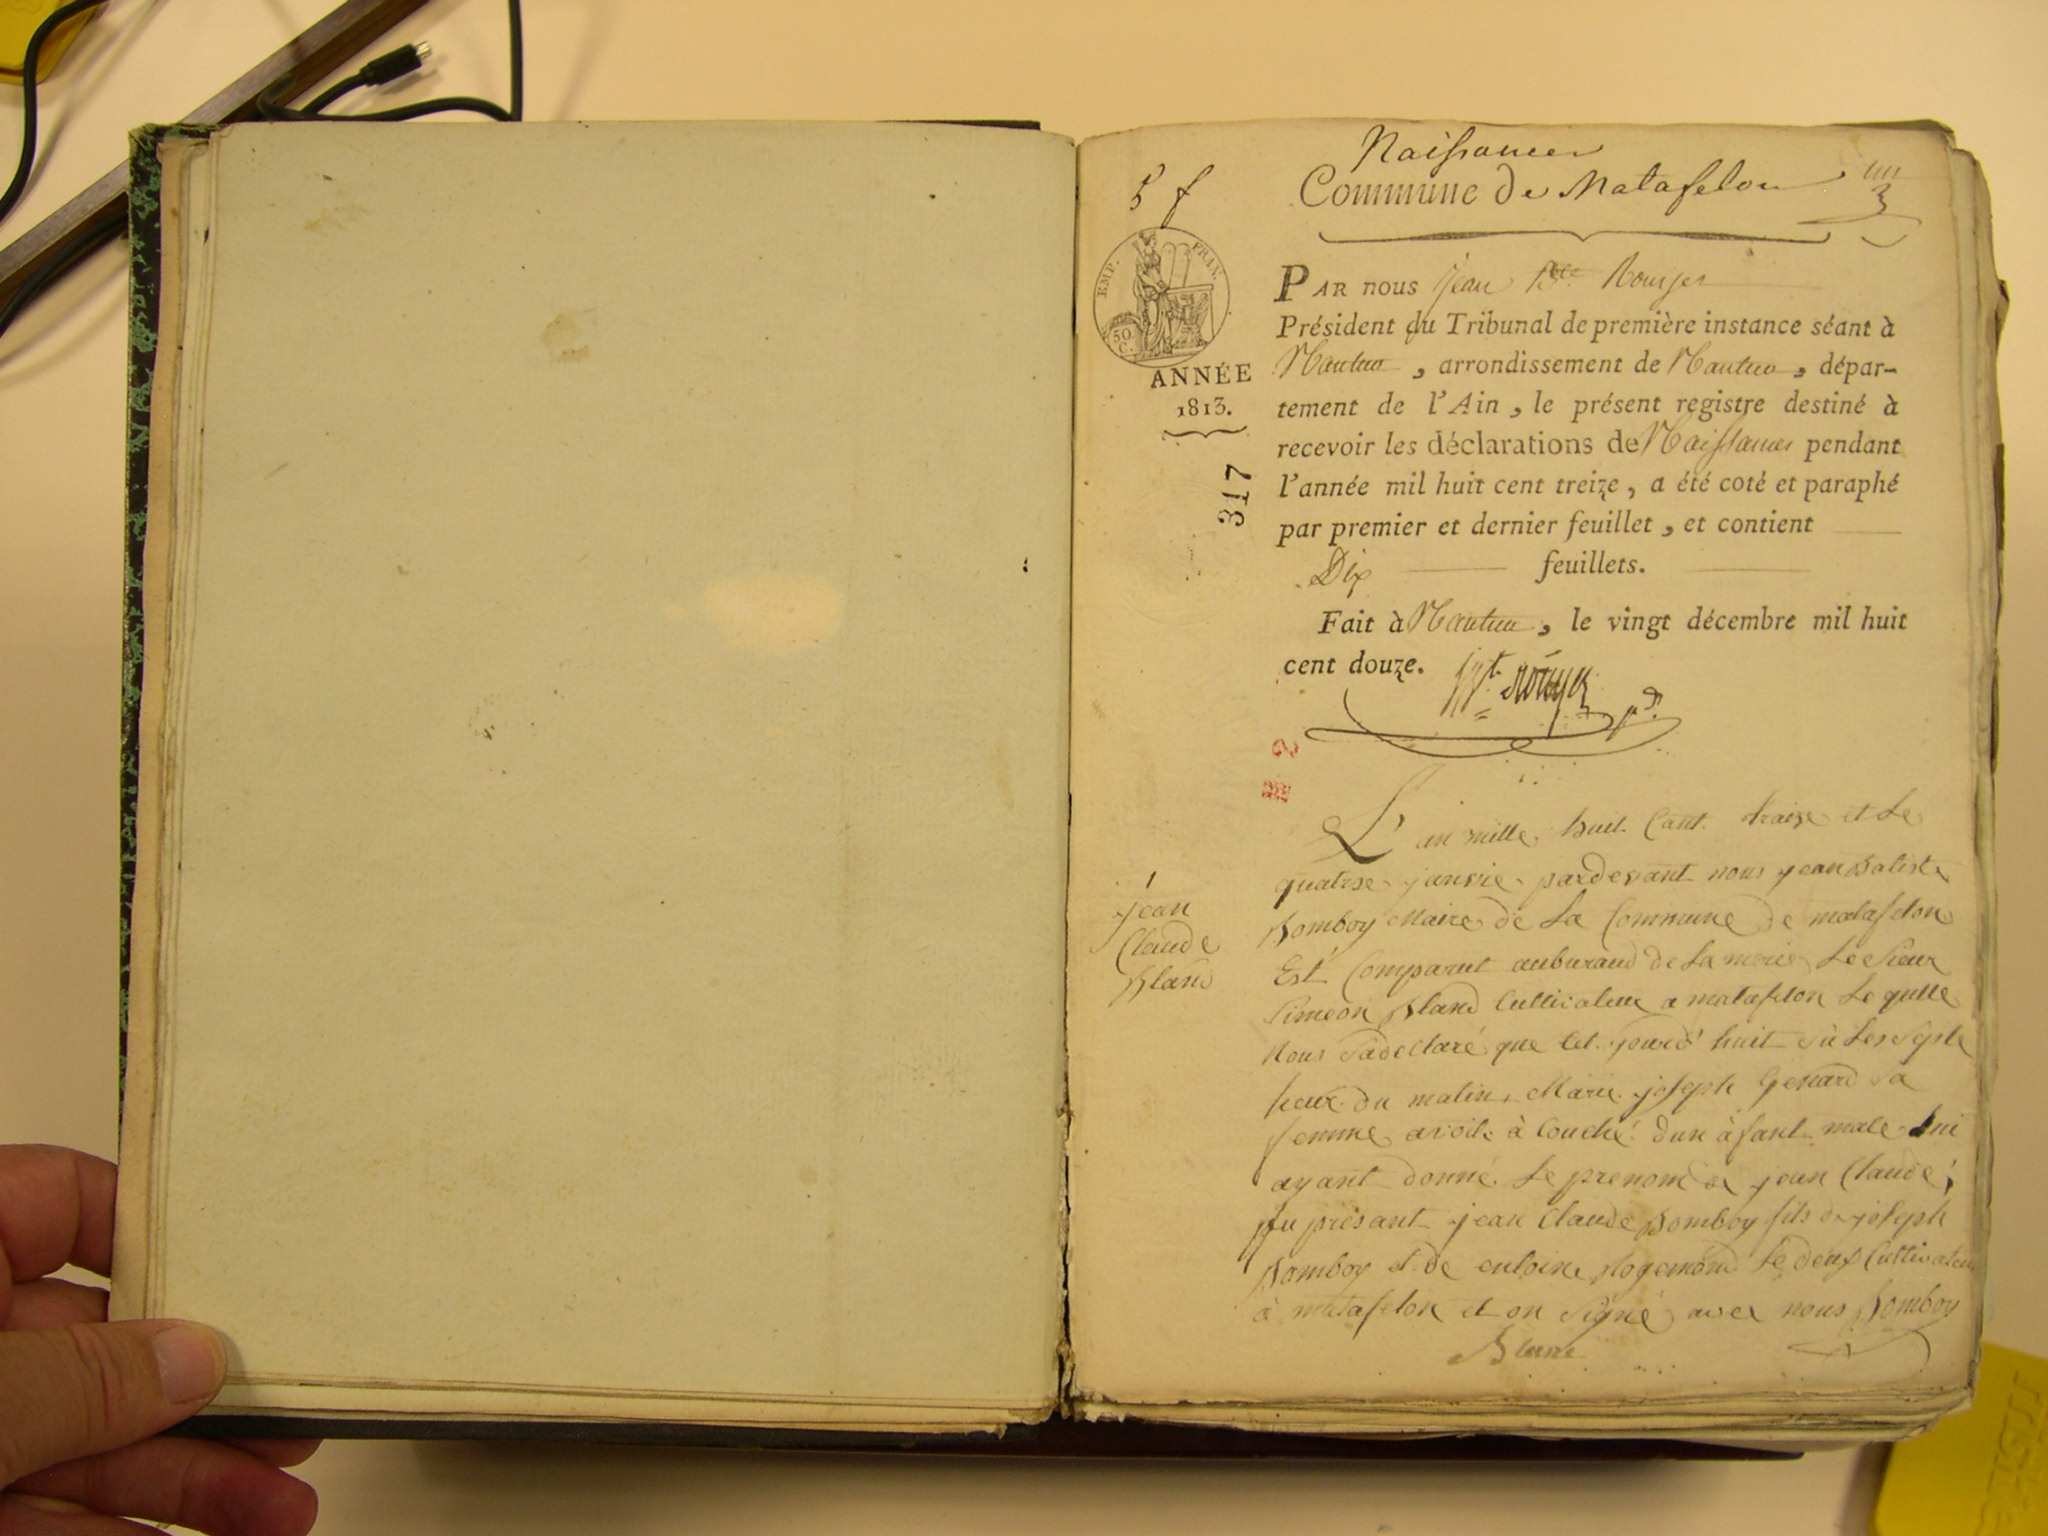 Naissances
Commune de Matafelon
un
5 f
EMP. FRAN.
50 C.
ANNÉE
1813.
317
PAR nous Jean Bte Rouyer
Président du Tribunal de première instance séant à
Nantua, arrondissement de Nantua, dépar-
tement de l'Ain, le présent registre destiné à
recevoir les déclarations de Naissances pendant
l'année mil huit cent treize, a été coté et paraphé
par premier et dernier feuillet, et contient
Dix feuillets.
Fait à Nantua, le vingt décembre mil huit
cent douze.
Rouyer
1
jean
Claude
Bland
L'an mille huit Cant traize et Le
quatre janvie pardevant nous jean Batiste
Bomboy Maire de La Commune de matafelon
Est Comparut auburaud de La merie Le Sieur
Simeon Bland Cutticateur a matafelon Le quelle
Nous a declaré que Cet jourd'huit sù Les Septe
heur du matin, Marie joseph Genard sa
femme avoit à Couché dun àfant male Lui
ayant donné Le prenom de jean Claude;
fu présant jean Claude Bomboy fils de joseph
Bomboy et de entoine Rogemond Le deux Cuttivateur
à matafelon et on Signé avec nous Bomboy
Blanc